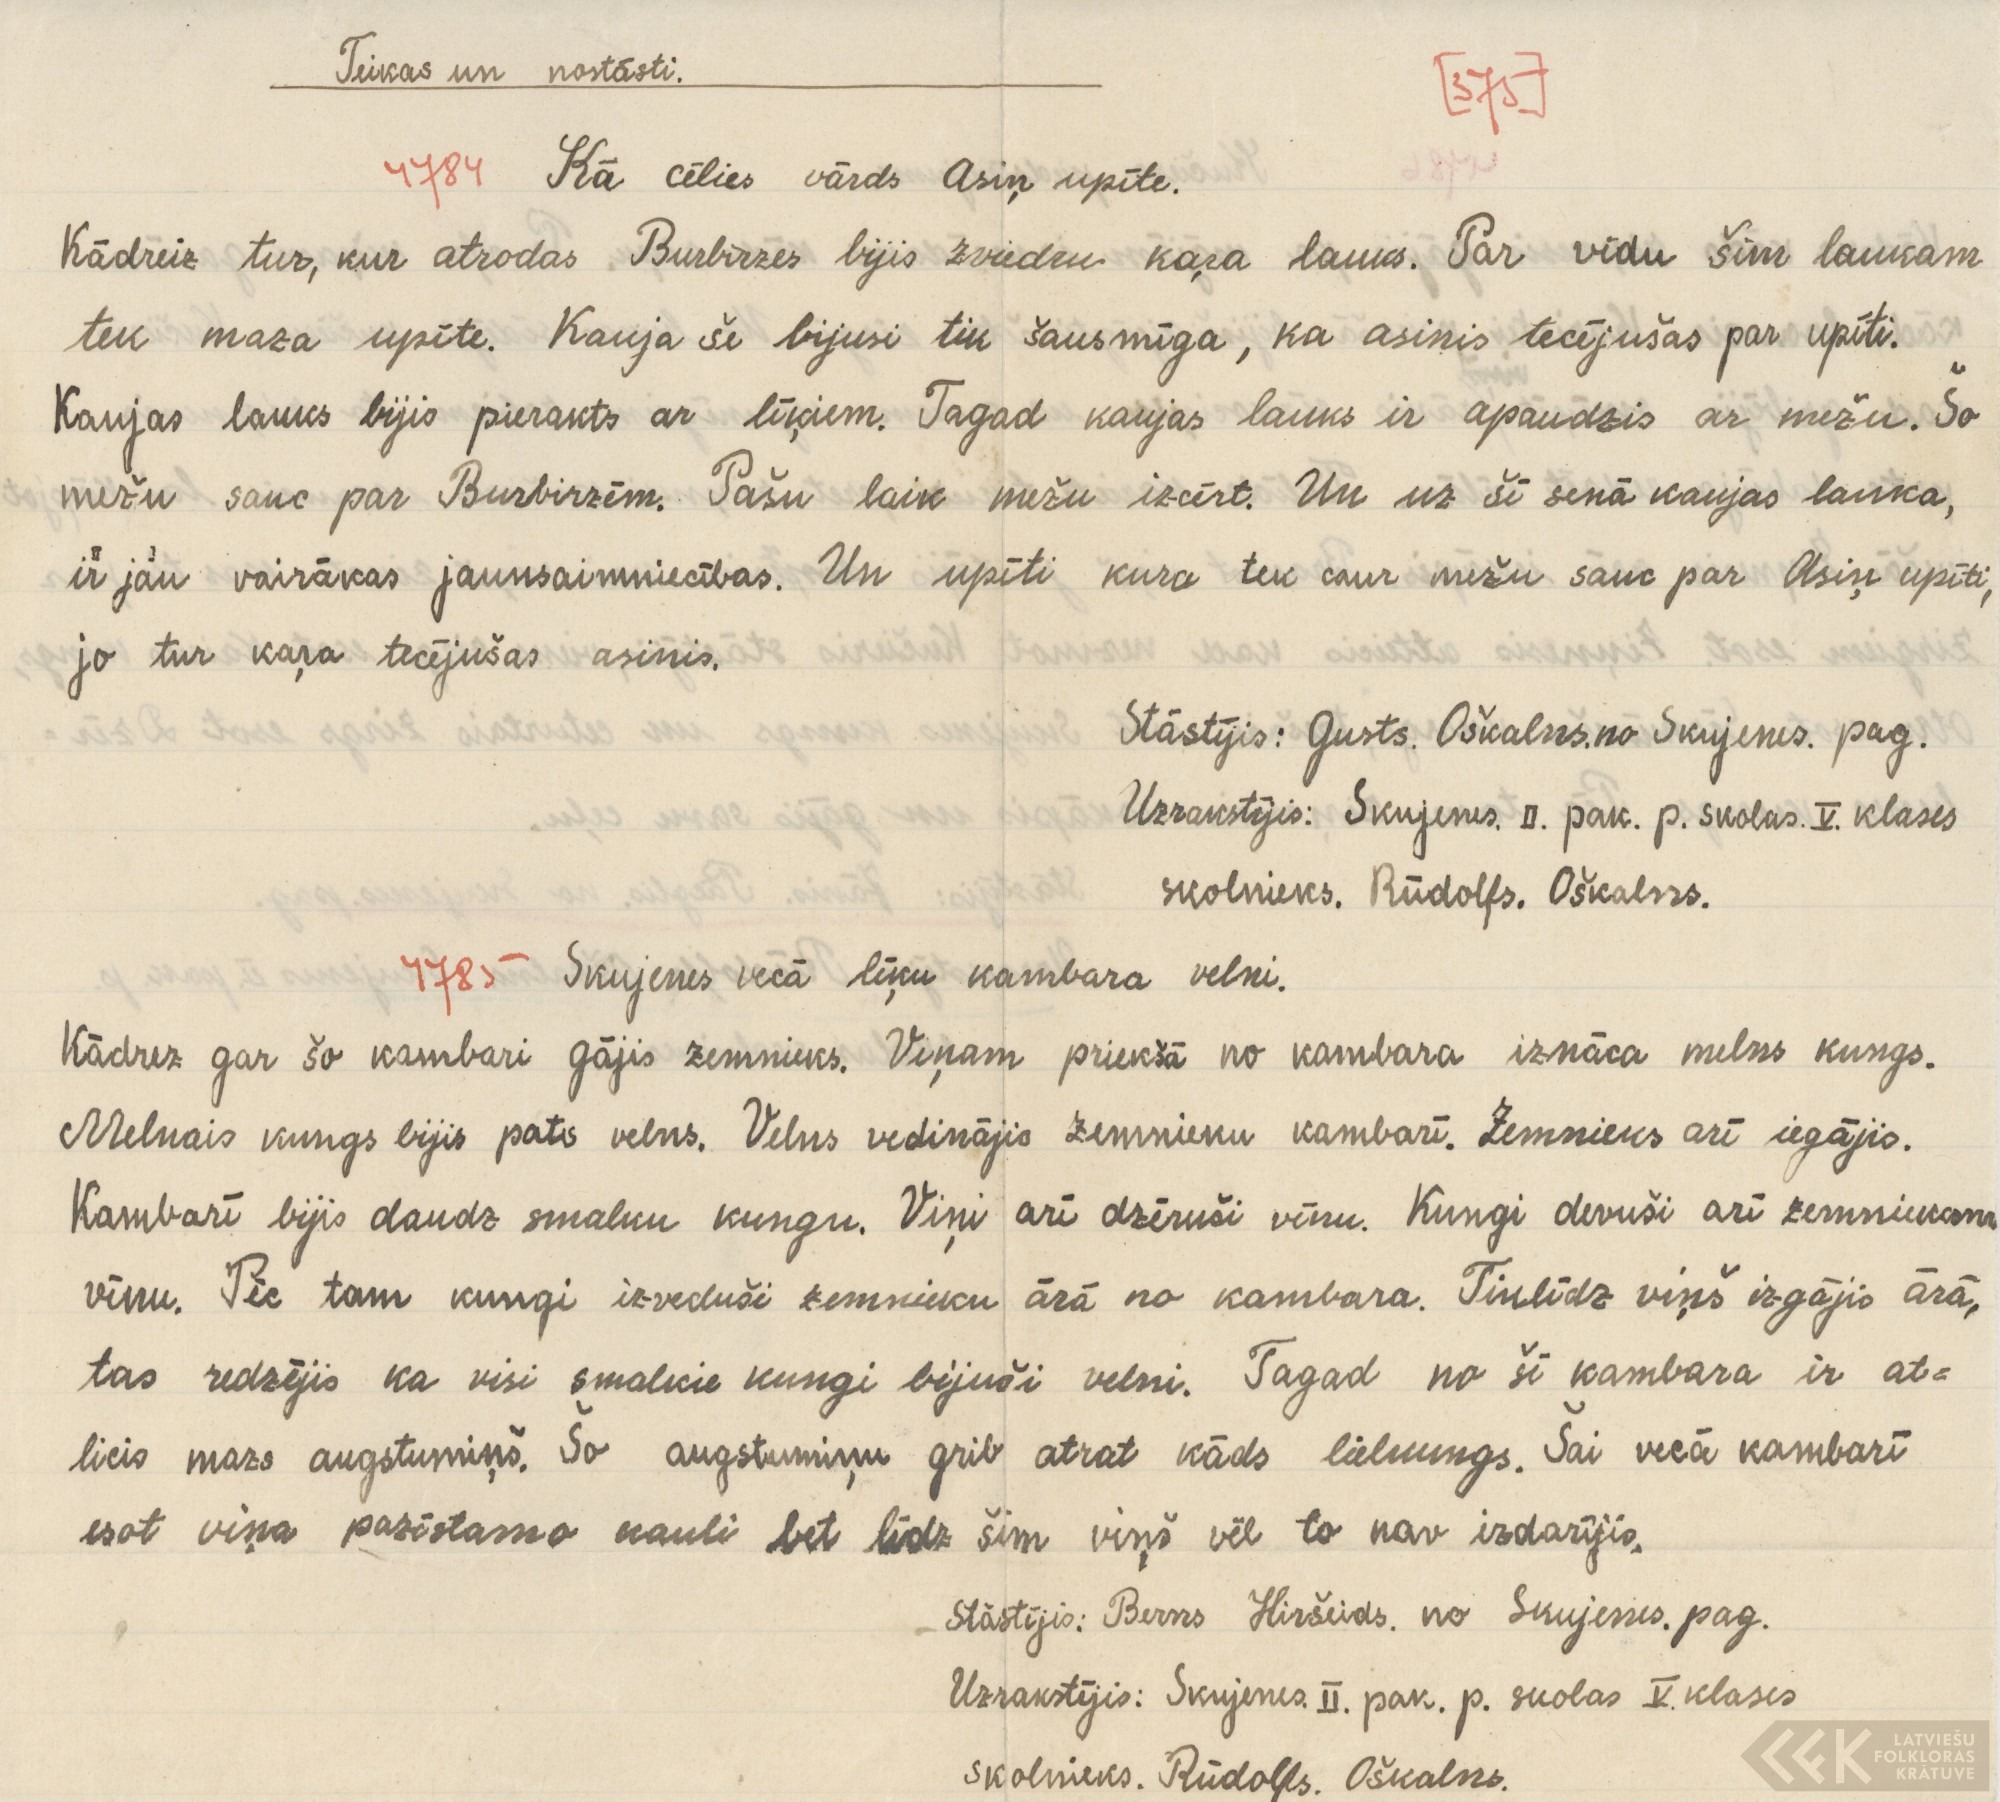 Teikas un nostāsti.
[375]
4784 Kā cēlies vārds Asiņ upīte.
Kādreiz tur, kur atrodas Burbirzes bijis zviedru kaŗa lauks. Par vidu šim laukam
tek maza upīte. Kauja še bijusi tik šausmīga, ka asinis tecējušas par upīti.
Kaujas lauks bijis pierakts ar līķiem. Tagad kaujas lauks ir apaudzis ar mežu. Šo
mežu sauc par Burbirzēm. Pašu laik mežu izcērt. Un uz šī senā kaujas lauka,
ir jau vairākas jaunsaimniecības. Un upīti kura tek caur mežu sauc par Asiņ upīti,
jo tur kaŗa tecējušas asinis.
Stāstījis: Gusts. Oškalns. no Skujenes. pag.
Uzrakstījis: Skujenes. II. pak. p. skolas. V. klases
skolnieks. Rūdolfs. Oškalns.
4785 Skujenes vecā līķu kambara velni.
Kādrez gar šo kambari gājis zemnieks. Viņam priekšā no kambara iznāca melns kungs.
Melnais kungs bijis pats velns. Velns vedinājis zemnieku kambarī. Zemnieks arī iegājis.
Kambarī bijis daudz smalku kungu. Viņi arī dzēruši vīnu. Kungi devuši arī zemniekam
vīnu. Pēc tam kungi izveduši zemnieku ārā no kambara. Tiklīdz viņš izgājis ārā,
tas redzējis ka visi smalkie kungi bijuši velni. Tagad no šī kambara ir at=
licis mazs augstumiņš. Šo augstumiņu grib atrat kāds lielkungs. Šai vecā kambarī
esot viņa pazīstamo kauli bet līdz šim viņš vēl to nav izdarījis.
Stāstījis: Berns Hiršeids. no Skujenes. pag.
Uzrakstījis: Skujenes. II. pak. p. skolas V. klases
skolnieks. Rūdolfs. Oškalns.
LATVIEŠU
FOLKLORAS
KRĀTUVE